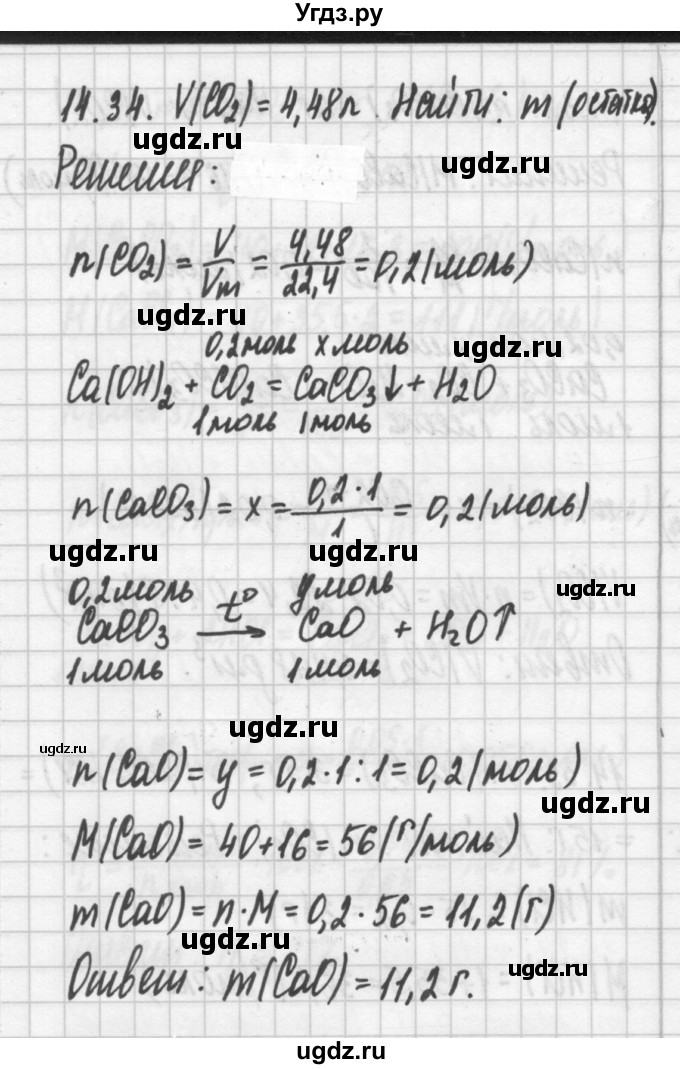 Угдз.ру
14.34. V(CO₂) = 4,48л. Найти: m (остатка).
ugdz.ru ugdz.ru
Решения:
n(CO₂) = V/Vm = 4,48/22,4 = 0,2(моль)
ugdz.ru
0,2моль x моль ugdz.ru
Ca(OH)₂ + CO₂ = CaCO₃↓ + H₂O
1моль 1моль
n(CaCO₃) = x = 0,2·1/1 = 0,2(моль)
ugdz.ru ugdz.ru
0,2моль y моль ugdz.ru
CaCO₃ t° → CaO + H₂O↑
1моль 1моль
ugdz.ru
ugdz.ru
n(CaO) = y = 0,2·1:1 = 0,2(моль)
ugdz.ru
M(CaO) = 40+16 = 56(г/моль)
m(CaO) = n·M = 0,2·56 = 11,2(г)
ugdz.ru
Ответ: m(CaO) = 11,2г.
ugdz.ru
ugdz.ru